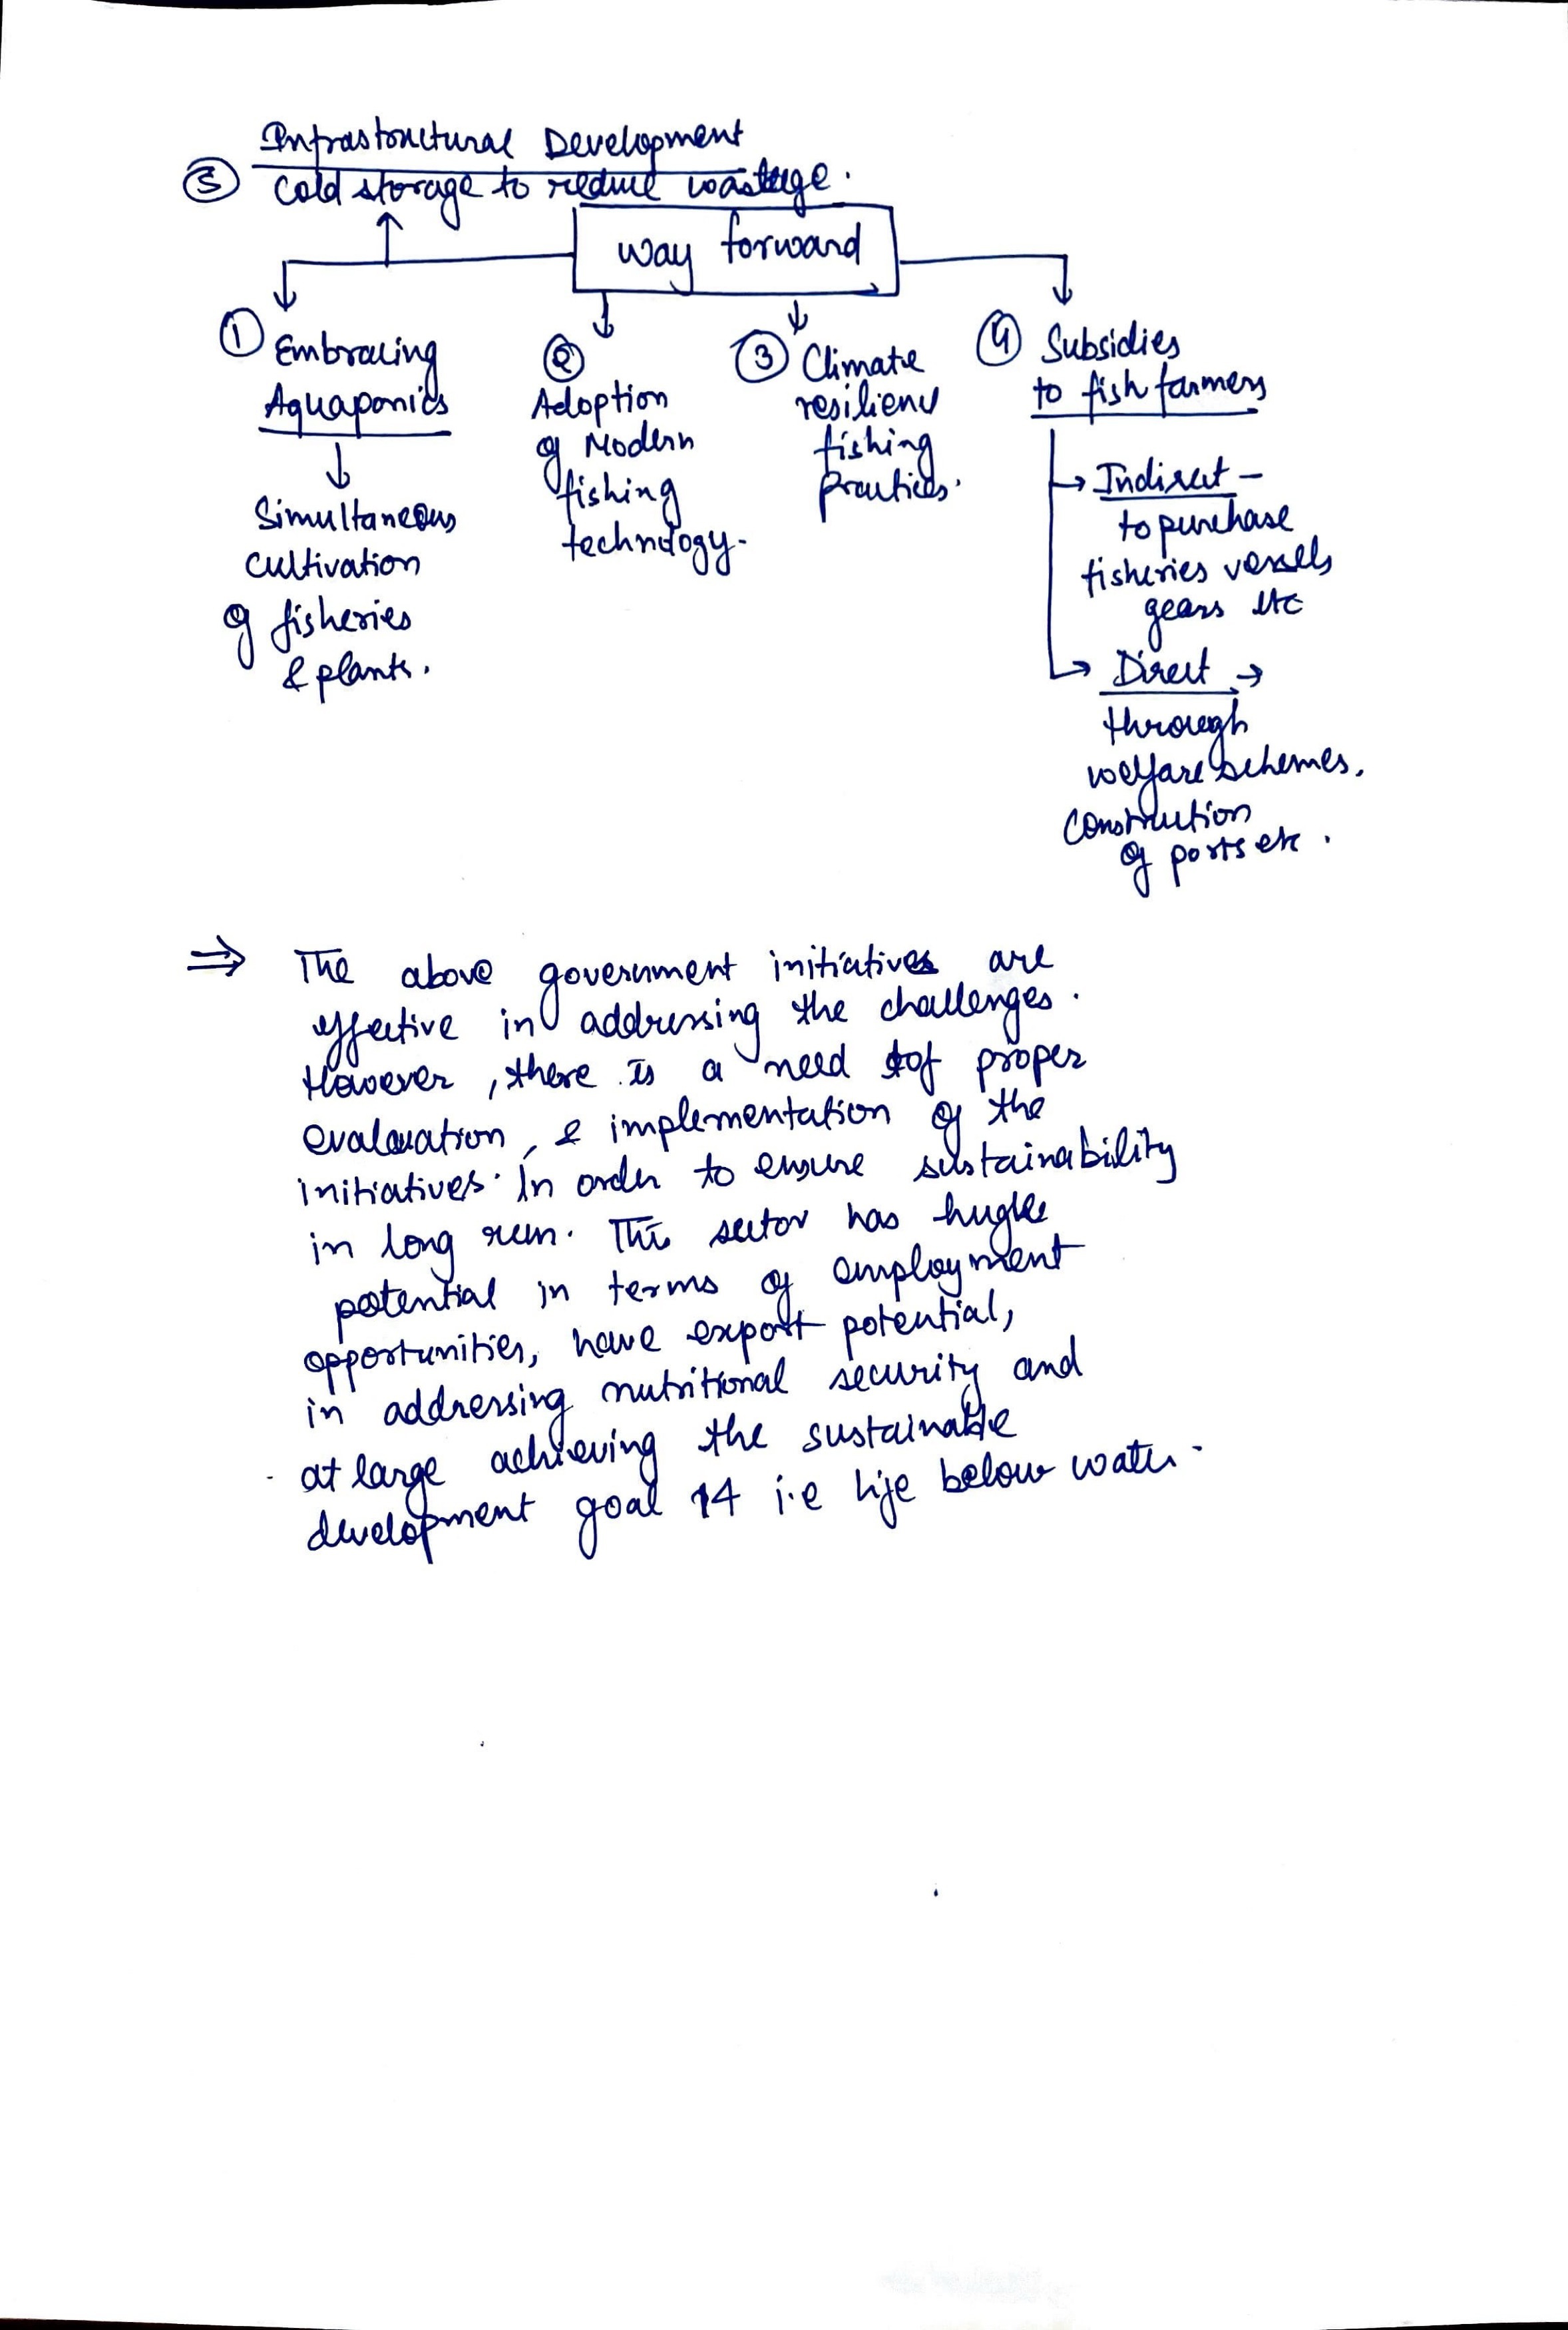 Infrastructural Development
⑤ Cold storage to reduce wastage.
way forward
① Embracing
Aquaponics
↓
Simultaneous
cultivation
of fisheries
& plants.
②
Adoption
of Modern
fishing
technology.
③ Climate
resilience
fishing
practices.
④ Subsidies
to fish farmers
→ Indirect –
to purchase
fisheries vessels
gears etc
→ Direct →
through
welfare schemes,
construction
of ports etc.
⇒ The above government initiatives are
effective in addressing the challenges.
However, there is a need of proper
evaluation, & implementation of the
initiatives. In order to ensure sustainability
in long run. This sector has huge
potential in terms of employment
opportunities, have export potential,
in addressing nutritional security and
at large achieving the sustainable
development goal 14 i.e life below water.